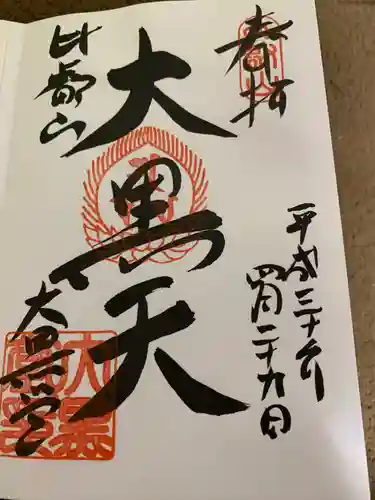 奉拝
平成三十年
四月二十九日
大黒天
比叡山
大黒堂